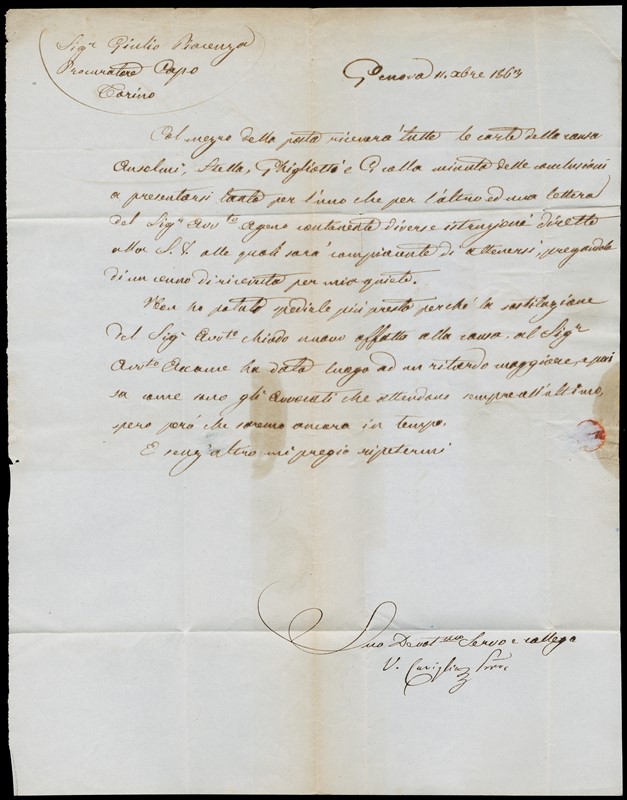 Sig.r Giulio Piacenza
Procuratore Capo
Torino
Genova 11. xbre 1863
Col mezzo della posta riceverà tutte le carte della causa
Anselmi, Stella, Ghigliotti e colla minuta delle conclusioni
a presentarsi tanto per l'uno che per l'altro ed una lettera
del Sig.r Avv.to Ageno contenente diverse istruzioni dirette
alla S. V. alle quali sarà compiacente di attenersi, pregandola
di un cenno di ricevuta per mia quiete.
Non ho potuto spedirle più presto perché la sostituzione
del Sig.r Avv.to Chiodo nuovo affatto alla causa, al Sig.r
Avv.to Acame ha dato luogo ad un ritardo maggiore, e poi
sa come sono gli avvocati che attendono sempre all'ultimo,
spero però che saremo ancora in tempo.
E senz'altro mi pregio ripetermi
Suo Devot.mo Servo e collega
V. Caviglia